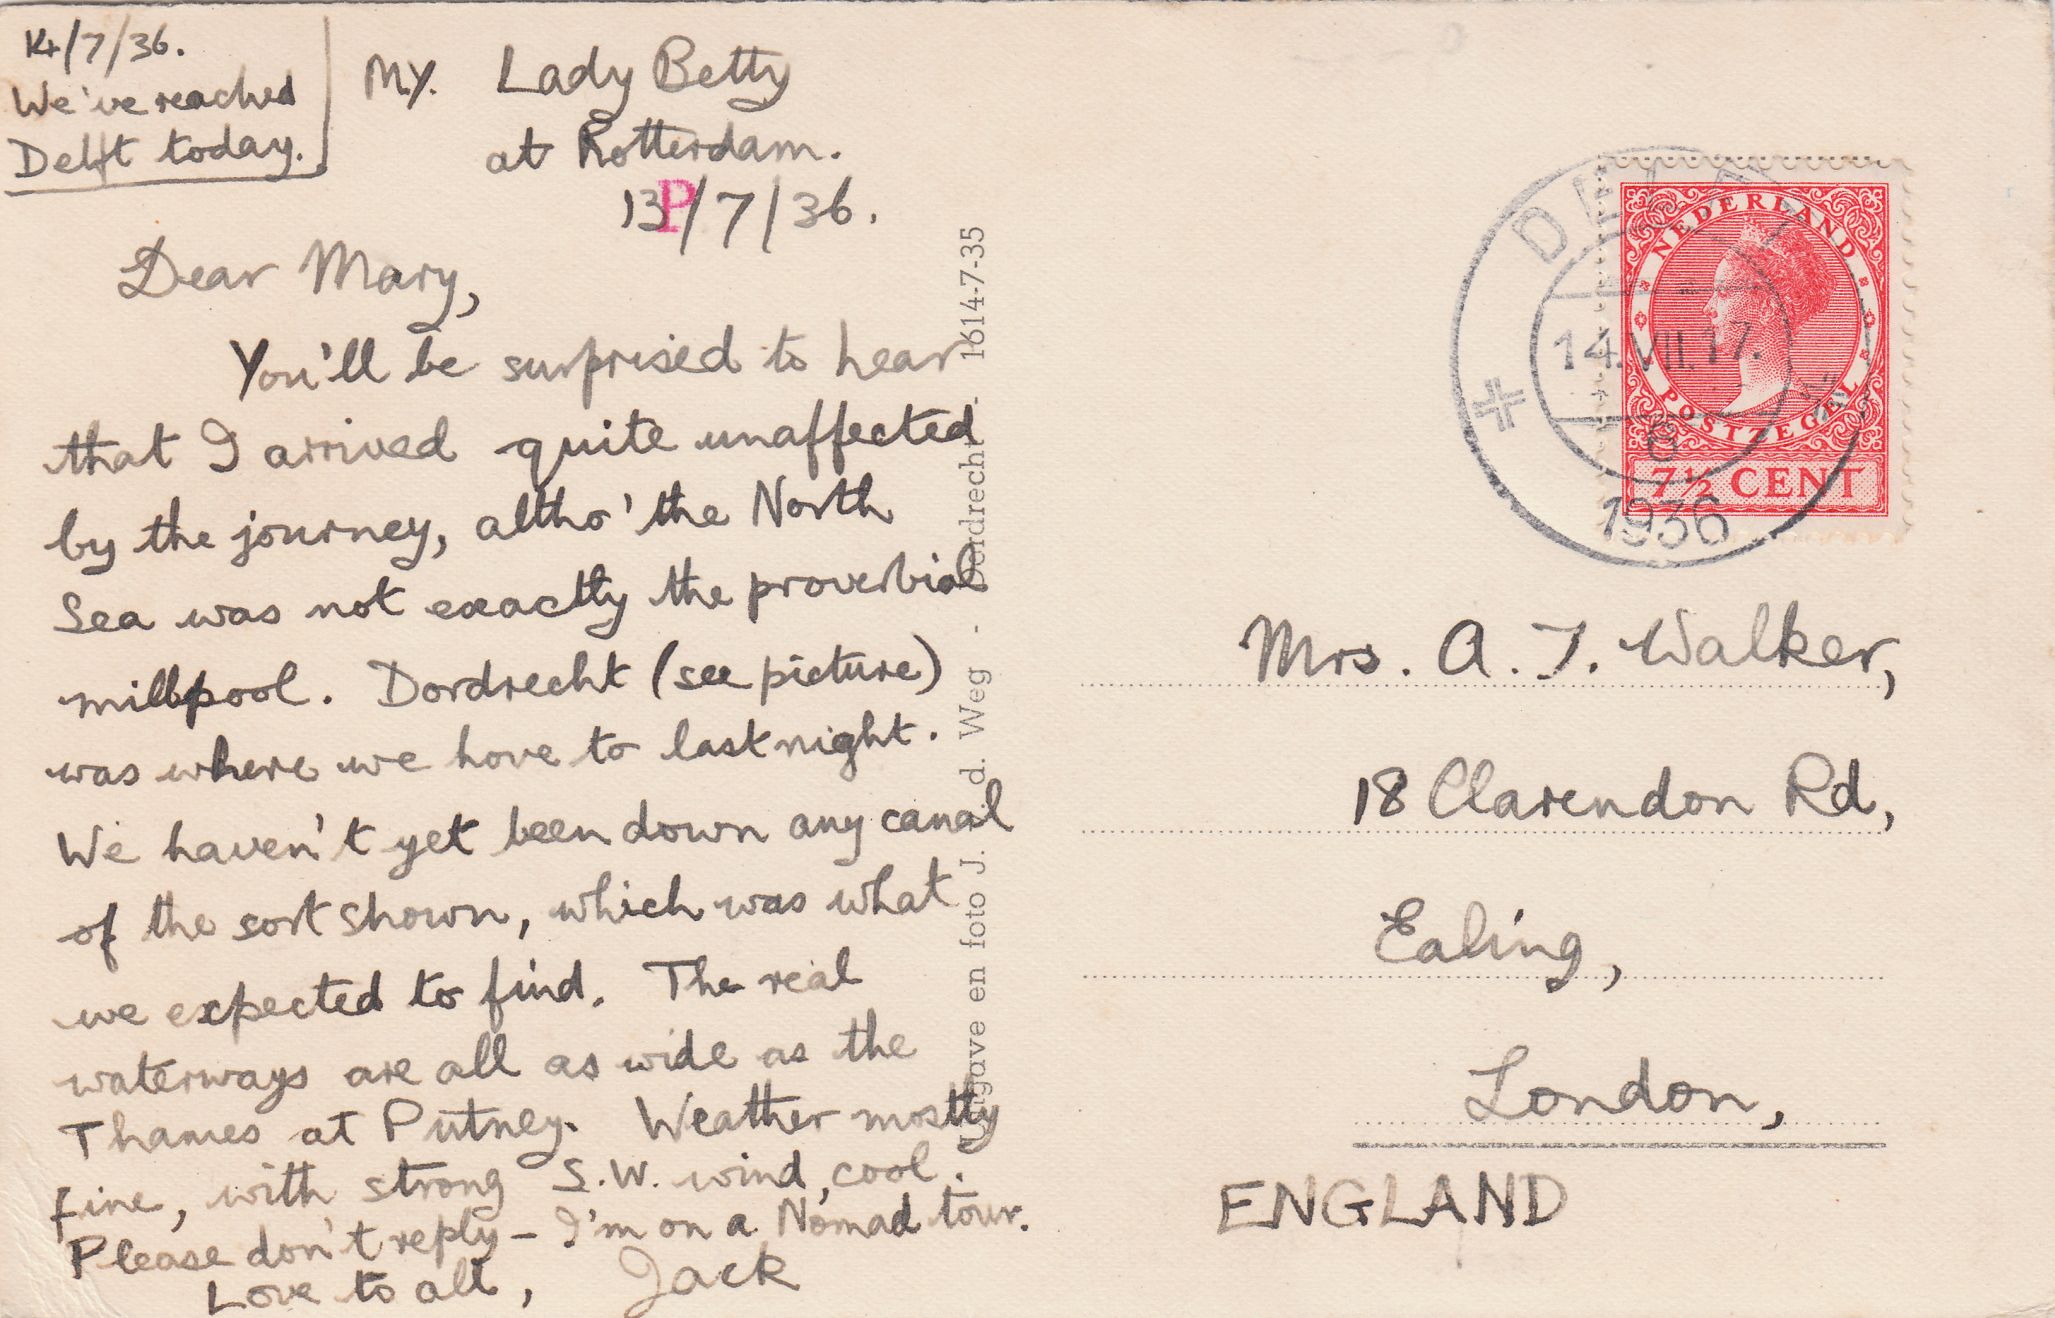 14/7/36.
We've reached
Delft today.
M.Y. Lady Betty
at Rotterdam.
13/7/36.
P
Dear Mary,
You'll be surprised to hear
that I arrived quite unaffected
by the journey, altho' the North
Sea was not exactly the proverbial
millpool. Dordrecht (see picture)
was where we hove to last night.
We haven't yet been down any canal
of the sort shown, which was what
we expected to find. The real
waterways are all as wide as the
Thames at Putney. Weather mostly
fine, with strong S.W. wind, cool.
Please don't reply - I'm on a Nomad tour.
Love to all, Jack
Uitgave en foto J. v. d. Weg - Dordrecht - 1614-7-35
DELFT
14.VII.17.
6
1936
NEDERLAND
POSTZEGEL
7½ CENT
Mrs. A. J. Walker,
18 Clarendon Rd,
Ealing,
London,
ENGLAND